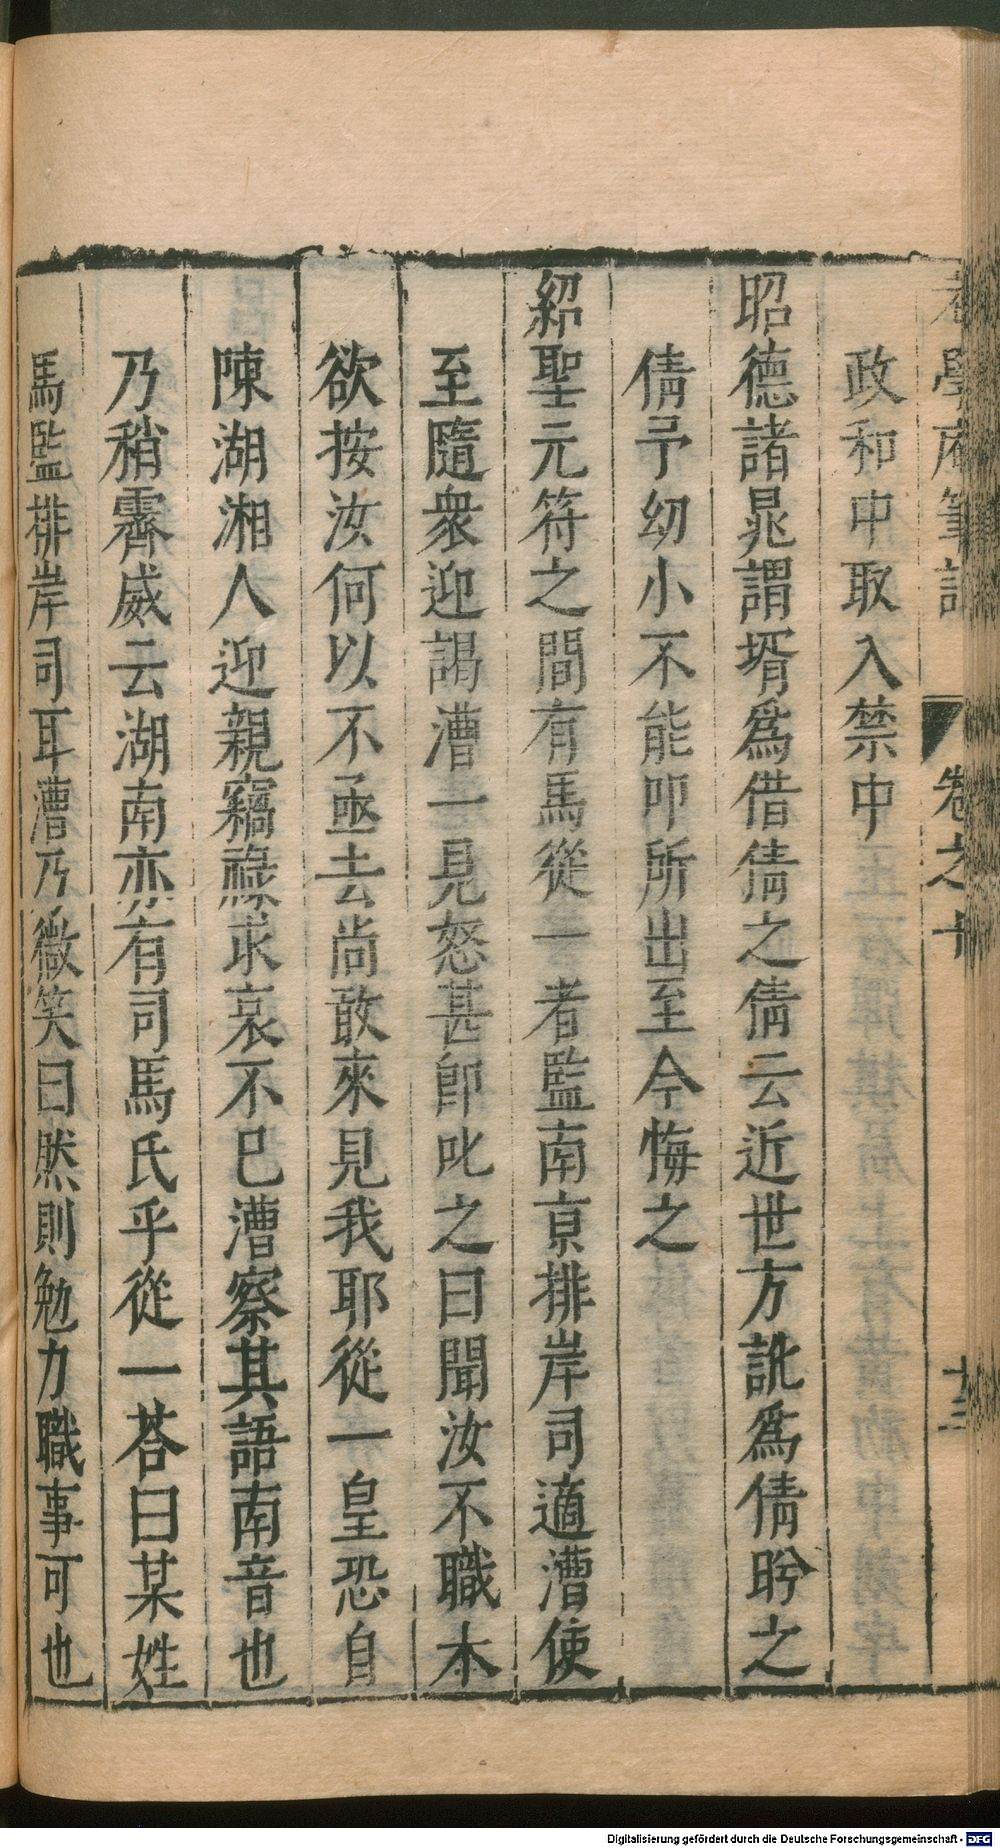 老學庵筆記 卷之十 十三
政和中取入禁中
昭德諸晁謂壻爲借倩之倩云近世方訛爲倩盼之
倩予幼小不能叩所出至今悔之
紹聖元符之間有馬從一者監南京排岸司適漕使
至隨衆迎謁漕一見怒甚卽叱之曰聞汝不職本
欲按汝何以不亟去尚敢來見我耶從一皇恐自
陳湖湘人迎親竊祿求哀不已漕察其語南音也
乃稍霽威云湖南亦有司馬氏乎從一荅曰某姓
馬監排岸司耳漕乃微笑曰然則勉力職事可也
Digitalisierung gefördert durch die Deutsche Forschungsgemeinschaft - DFG